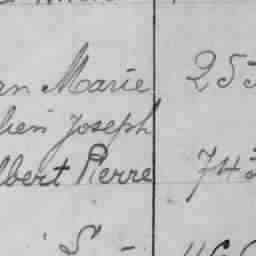 an Marie 255
lien Joseph
lbert Pierre 743
S -